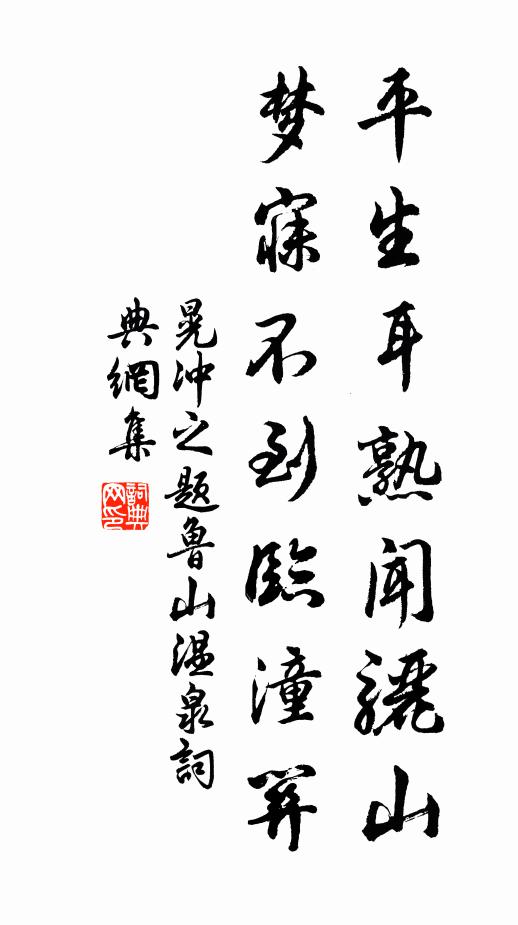 平生耳熟闻骊山
梦寐不到临潼関
晃冲之题鲁山温泉詞
典網集
詞典网印